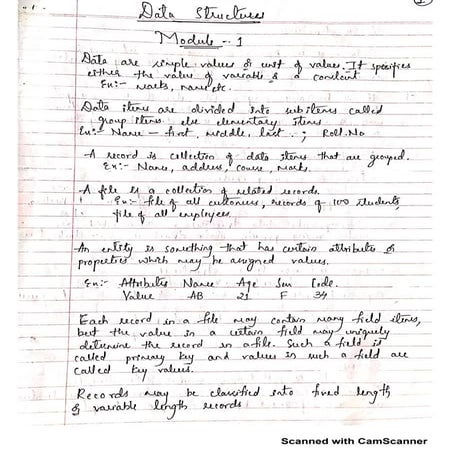 Data Structures
Module - 1
Data are simple values or set of values. It specifies
either the value of variable or a constant
Ex:- Marks, name etc.
Data items are divided into subitems called
group items. else elementary items
Ex:- Name - first, middle, last. ; Roll.No
A record is collection of data items that are grouped.
Ex:- Name, address, course, marks.
A file is a collection of related records.
Ex:- file of all customers, records of 100 students,
file of all employees.
An entity is something that has certain attributes or
properties which may be assigned values.
Ex:- Attributes Name Age Sex Code.
Value AB 21 F 34
Each record in a file may contain many field items,
but the value in a certain field may uniquely
determine the record in a file. Such a field is
called primary key and values in such a field are
called key values.
Records may be classified into fixed length
or variable length records
Scanned with CamScanner